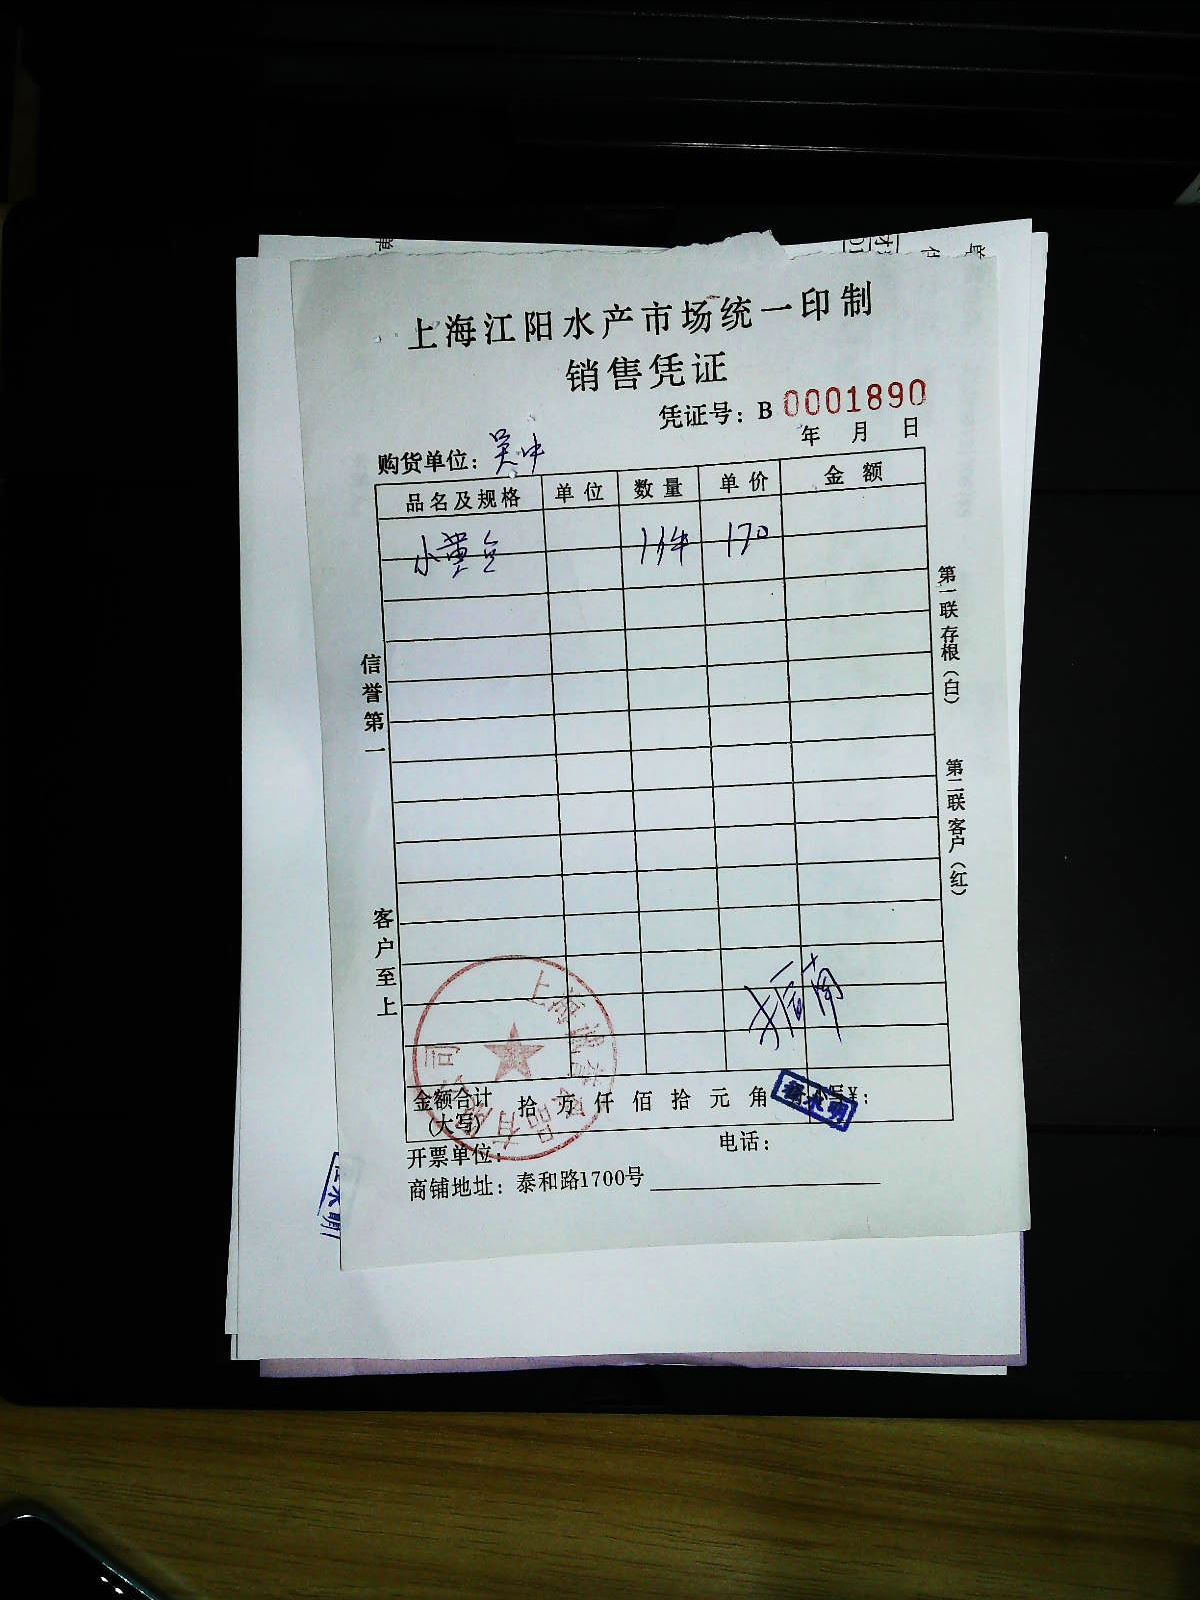 上海江阳水产市场统一印制
销售凭证
凭证号：B 0001890
年 月 日
购货单位：吴中
品名及规格 单位 数量 单价 金额
小黄鱼 1件 170
信誉第一
客户至上
第一联存根（白）
第二联客户（红）
金额合计（大写） 拾 万 仟 佰 拾 元 角 小写¥：
开票单位： 电话：
商铺地址：泰和路1700号